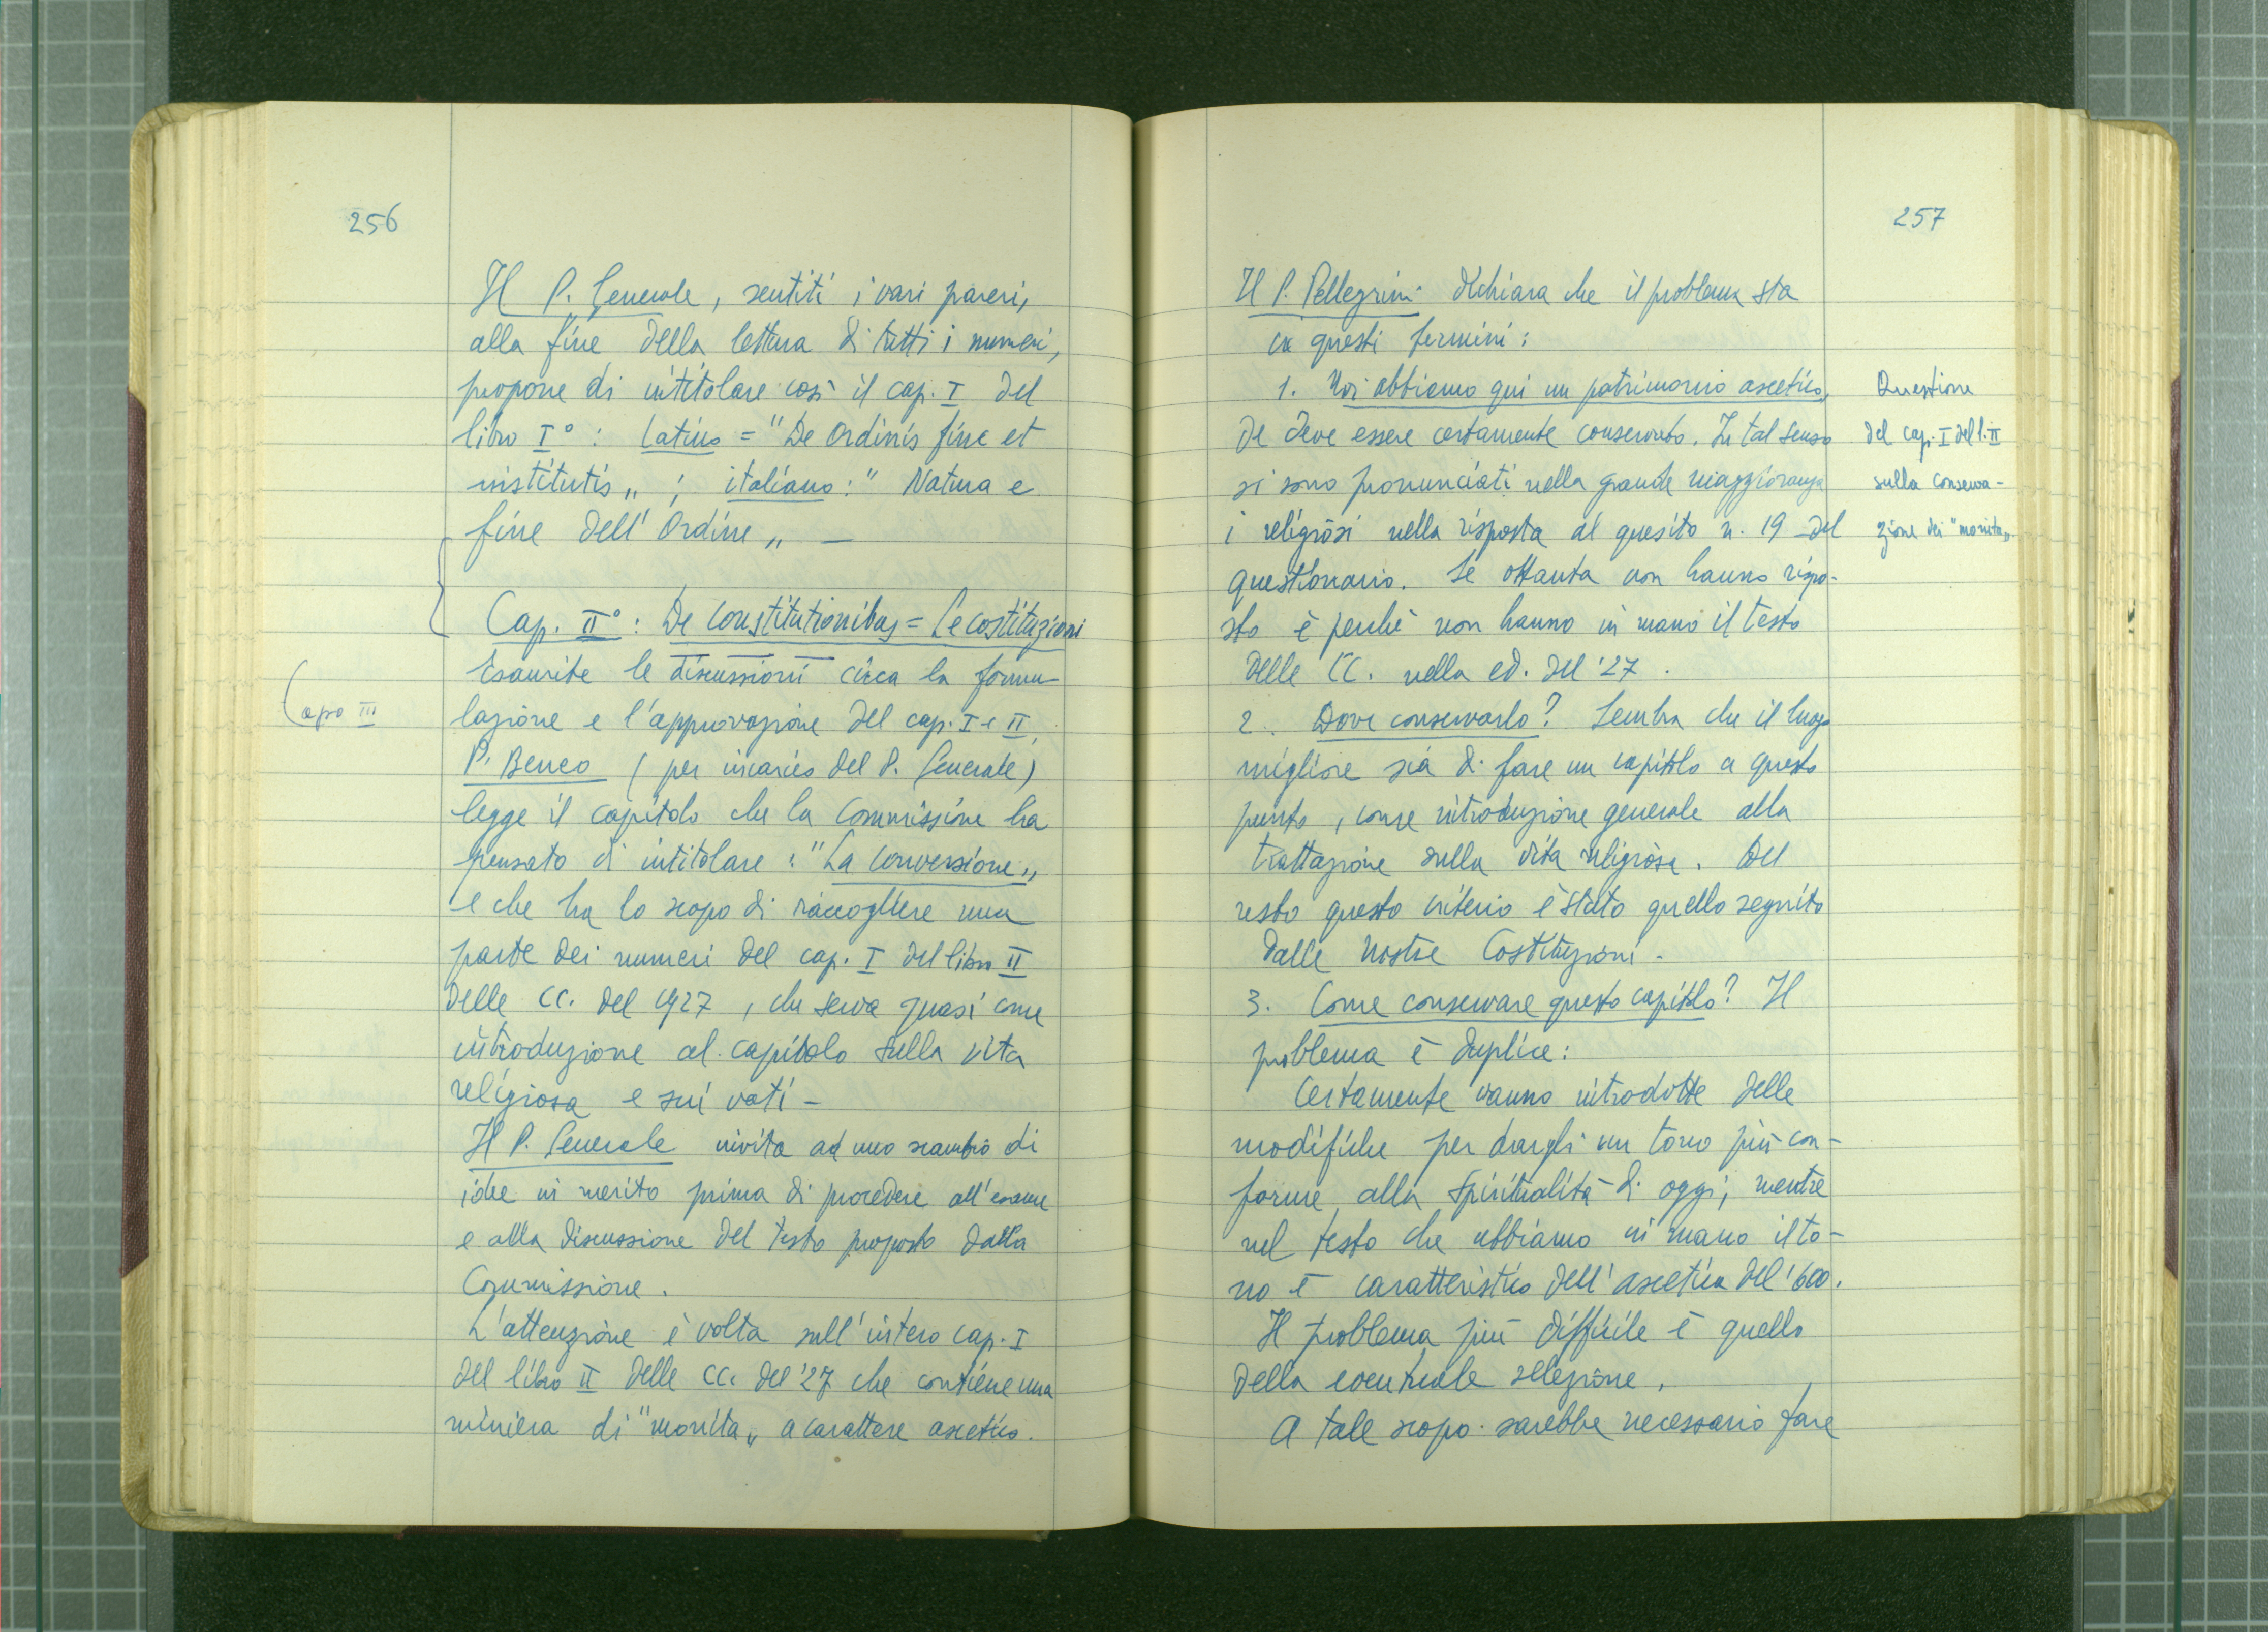 256
Il P. Generale, sentiti i vari pareri,
alla fine della lettura di tutti i numeri,
propone di intitolare così il cap. I del
libro I° : latino = "De Ordinis fine et
institutis„ ; italiano : " Natura e
fine dell' Ordine „ —
Cap. II° : De Constitutionibus = Le costituzioni
Esaurite le discussioni circa la formu-
Capo III
lazione e l'approvazione del cap. I e II,
P. Beneo ( per incarico del P. Generale )
legge il capitolo che la Commissione ha
pensato di intitolare : "La Conversione„
e che ha lo scopo di raccogliere una
parte dei numeri del cap. I del libro II
delle CC. del 1927 , che serva quasi come
introduzione al capitolo sulla vita
religiosa e sui voti —
Il P. Generale invita ad uno scambio di
idee in merito prima di procedere all'esame
e alla discussione del testo proposto dalla
Commissione .
L'attenzione è volta sull'intero cap. I
del libro II delle CC. del '27 che contiene una
miniera di "monita„ a carattere ascetico.
257
Il P. Pellegrini dichiara che il problema sta
in questi termini :
1. Noi abbiamo qui un patrimonio ascetico,
che deve essere certamente conservato. In tal senso
si sono pronunciati nella grande maggioranza
i religiosi nella risposta al quesito n. 19 del
questionario. Se ottanta non hanno rispo-
sto è perchè non hanno in mano il testo
delle CC. nella ed. del '27 .
2. Dove conservarlo ? Sembra che il luogo
migliore sia di fare un capitolo a questo
punto , come introduzione generale alla
trattazione sulla vita religiosa . Del
resto questo criterio è stato quello seguito
dalle nostre Costituzioni .
3. Come conservare questo capitolo ? Il
problema è duplice :
Certamente vanno introdotte delle
modifiche per dargli un tono più con-
forme alla spiritualità di oggi, mentre
nel testo che abbiamo in mano il to-
no è caratteristico dell'ascetica del '600.
Il problema più difficile è quello
della eventuale selezione .
A tale scopo sarebbe necessario fare
Questione
del cap. I del l. II
sulla conserva-
zione dei "monita„